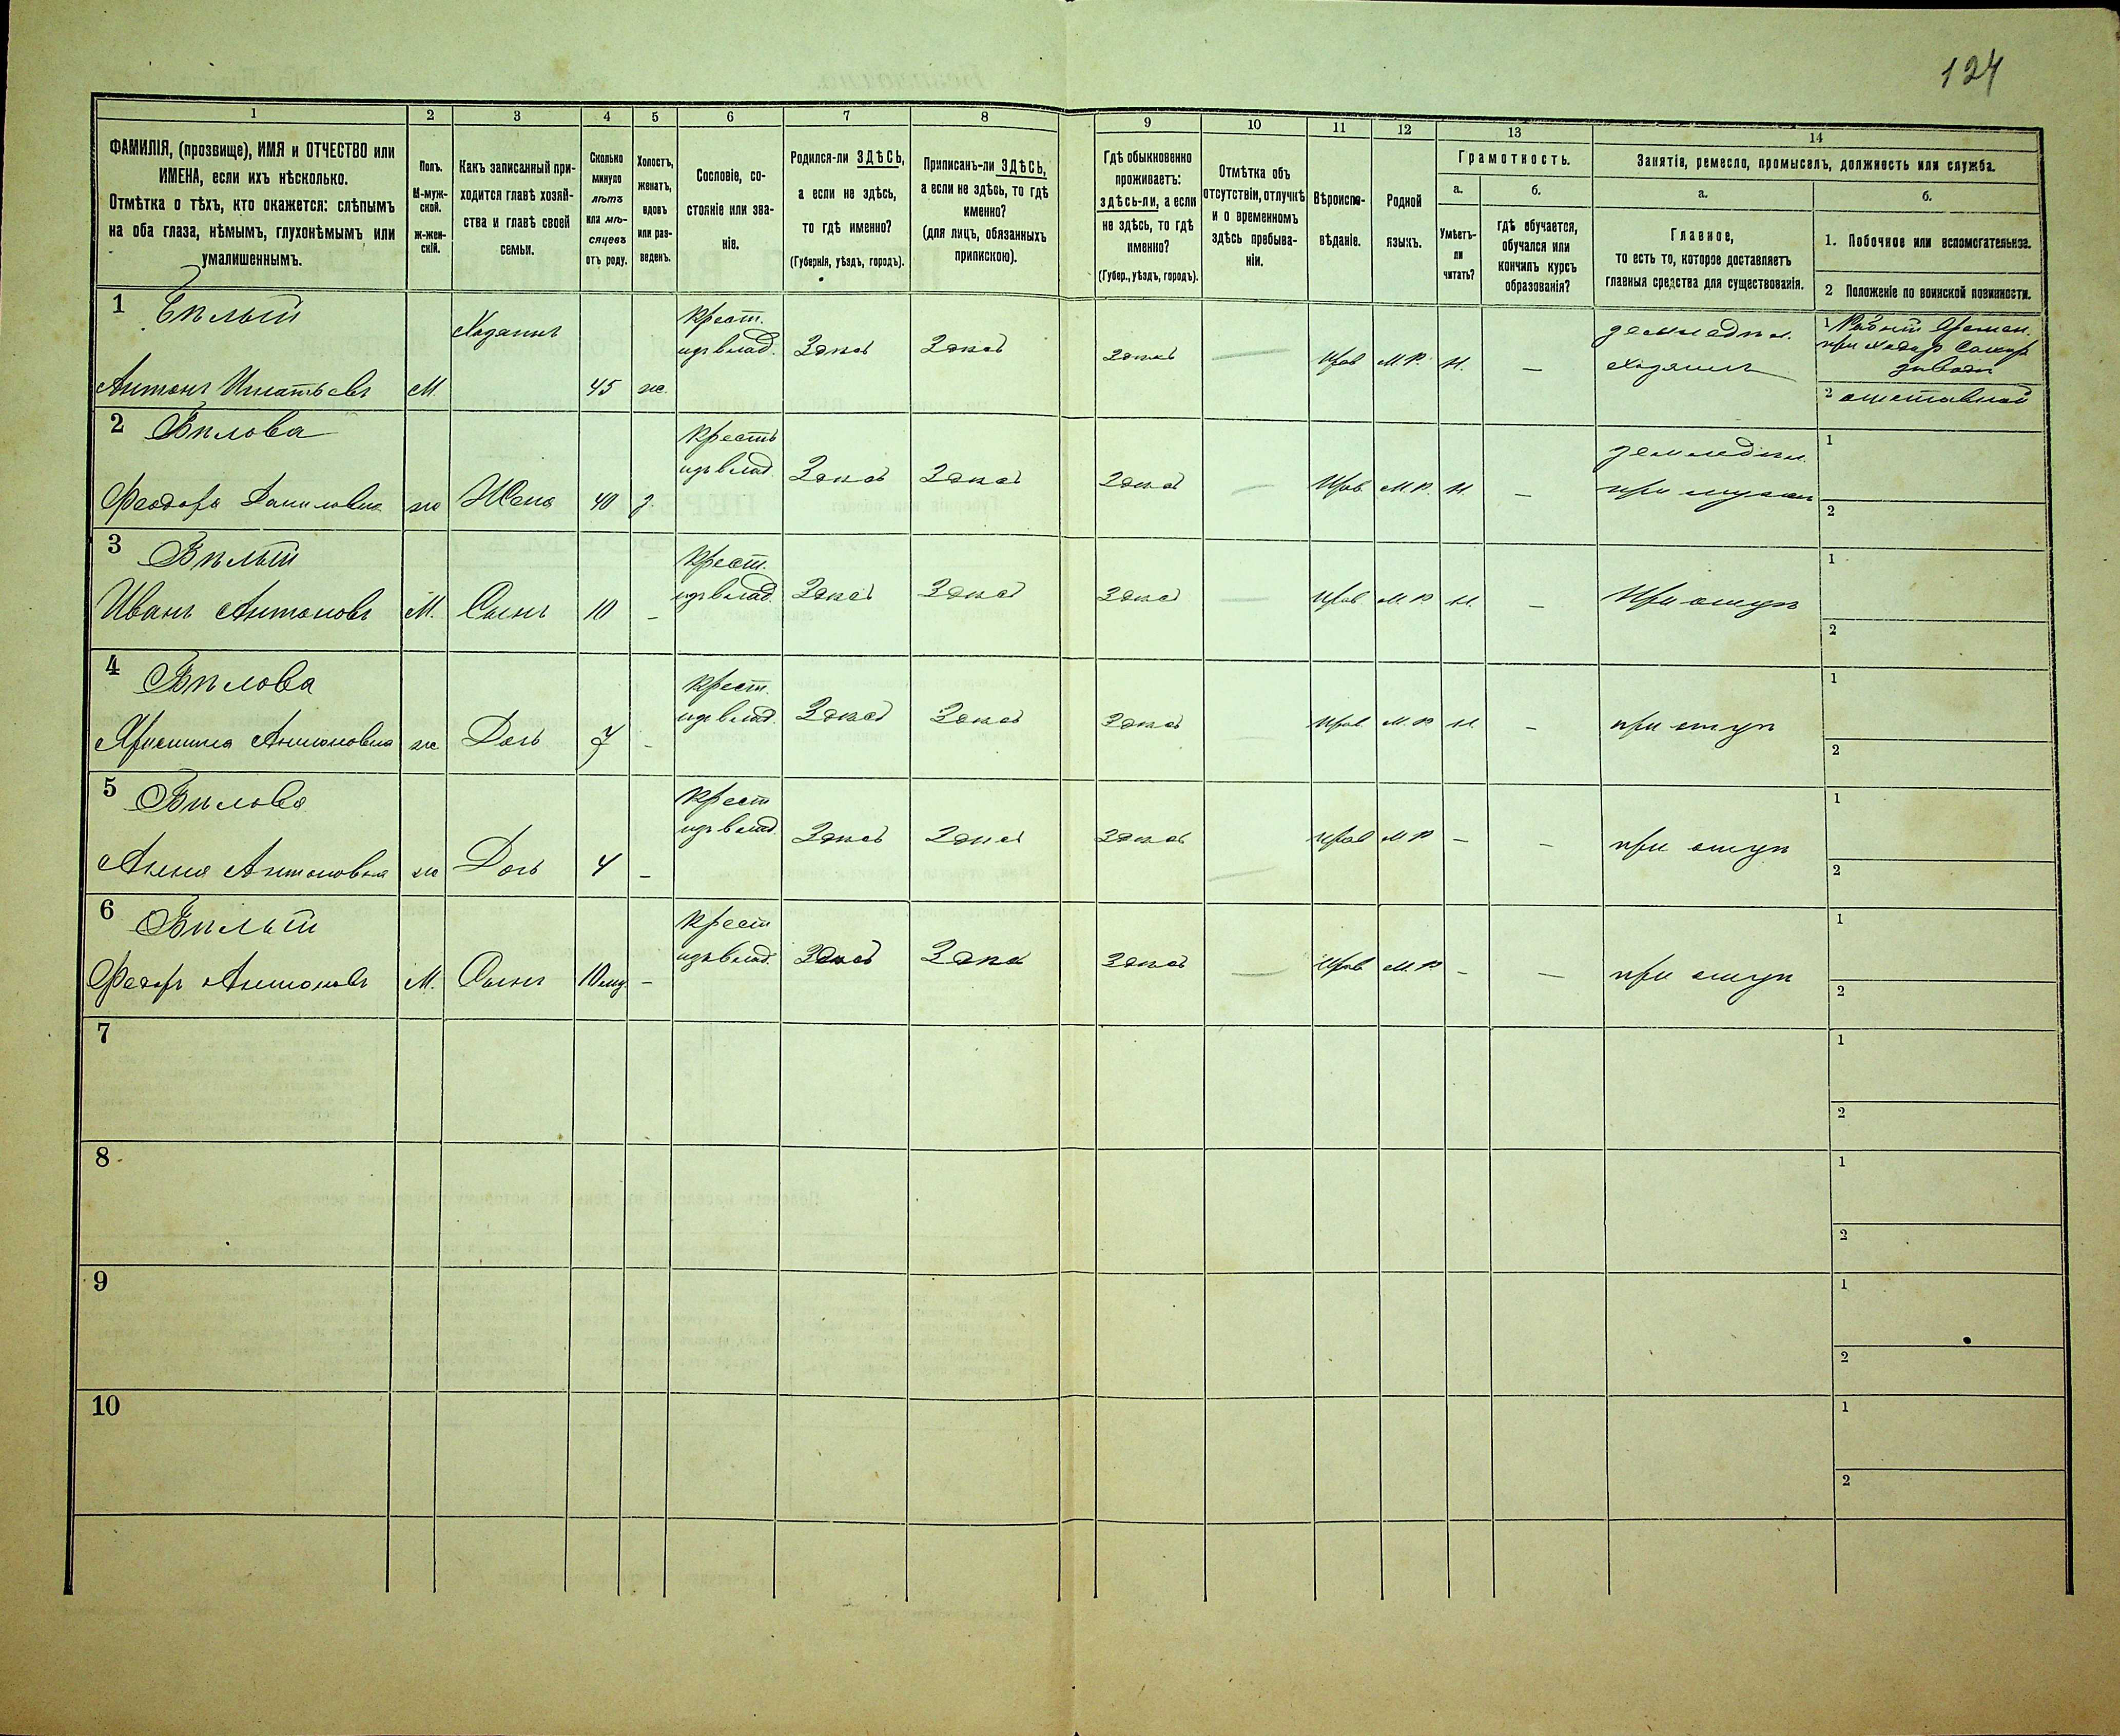 124
1 2 3 4 5 6 7 8 9 10 11 12 13 14
ФАМИЛІЯ, (прозвище), ИМЯ и ОТЧЕСТВО или
ИМЕНА, если ихъ нѣсколько.
Отмѣтка о тѣхъ, кто окажется: слѣпымъ
на оба глаза, нѣмымъ, глухонѣмымъ или
умалишеннымъ.
Полъ.
М-муж-
ской.
ж-жен-
скій.
Какъ записанный при-
ходится главѣ хозяй-
ства и главѣ своей
семьи.
Сколько
минуло
лѣтъ
или мѣ-
сяцевъ
отъ роду.
Холостъ,
женатъ,
вдовъ
или раз-
веденъ.
Сословіе, со-
стояніе или зва-
ніе.
Родился-ли ЗДѢСЬ,
а если не здѣсь,
то гдѣ именно?
(Губернія, уѣздъ, городъ).
Приписанъ-ли ЗДѢСЬ,
а если не здѣсь, то гдѣ
именно?
(для лицъ, обязанныхъ
припискою).
Гдѣ обыкновенно
проживаетъ:
здѣсь-ли, а если
не здѣсь, то гдѣ
именно?
(Губер., уѣздъ, городъ).
Отмѣтка объ
отсутствіи, отлучкѣ
и о временномъ
здѣсь пребыва-
ніи.
Вѣроиспо-
вѣданіе.
Родной
языкъ.
Грамотность.
а.
Умѣетъ-
ли
читать?
б.
гдѣ обучается,
обучался или
кончилъ курсъ
образованія?
Занятіе, ремесло, промыселъ, должность или служба.
а.
Главное,
то есть то, которое доставляетъ
главныя средства для существованія.
б.
1. Побочное или вспомогательное.
2 Положеніе по воинской повинности.
1 Бѣлый
Антонъ Игнатьевъ М. Хозяинъ 45 ж.
Крест.
изъ влад. Здѣсь Здѣсь Здѣсь — Прав М.Р. Н. —
земледѣл.
хозяинъ
1
2 отставной
2 Бѣлова
Феодора Даниловна ж Жена 40 з.
Кресть
изъ влад. Здѣсь Здѣсь Здѣсь — Прав. М.Р. Н. —
земледѣл.
при мужѣ
1
2
3 Бѣлый
Иванъ Антоновъ М. Сынъ 10 –
Крест.
изъ влад. Здѣсь Здѣсь Здѣсь — Прав. М.Р. Н. — При отцѣ
1
2
4 Бѣлова
Христина Антоновна ж Дочь 7 –
Крест.
изъ влад. Здѣсь Здѣсь Здѣсь Прав. М.Р. Н. — при отцѣ
1
2
5 Бѣлова
Анна Антоновна ж Дочь 4 –
Крест
изъ влад. Здѣсь Здѣсь Здѣсь — Прав М.Р. – — при отцѣ
1
2
6 Бѣлый
Федоръ Антоновъ М. Сынъ 10 мц –
Крест
изъ влад. Здѣсь Здѣсь Здѣсь — Прав М.Р. – — при отцѣ
1
2
7
1
2
8
1
2
9
1
2
10
1
2